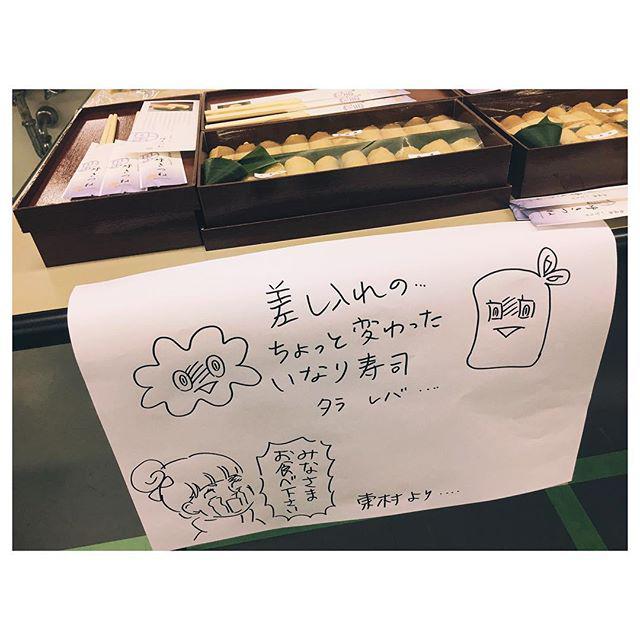 差し入れの...
ちょっと変わった
いなり寿司
タラ レバ....
みなさま
お食べ下さい
東村より....